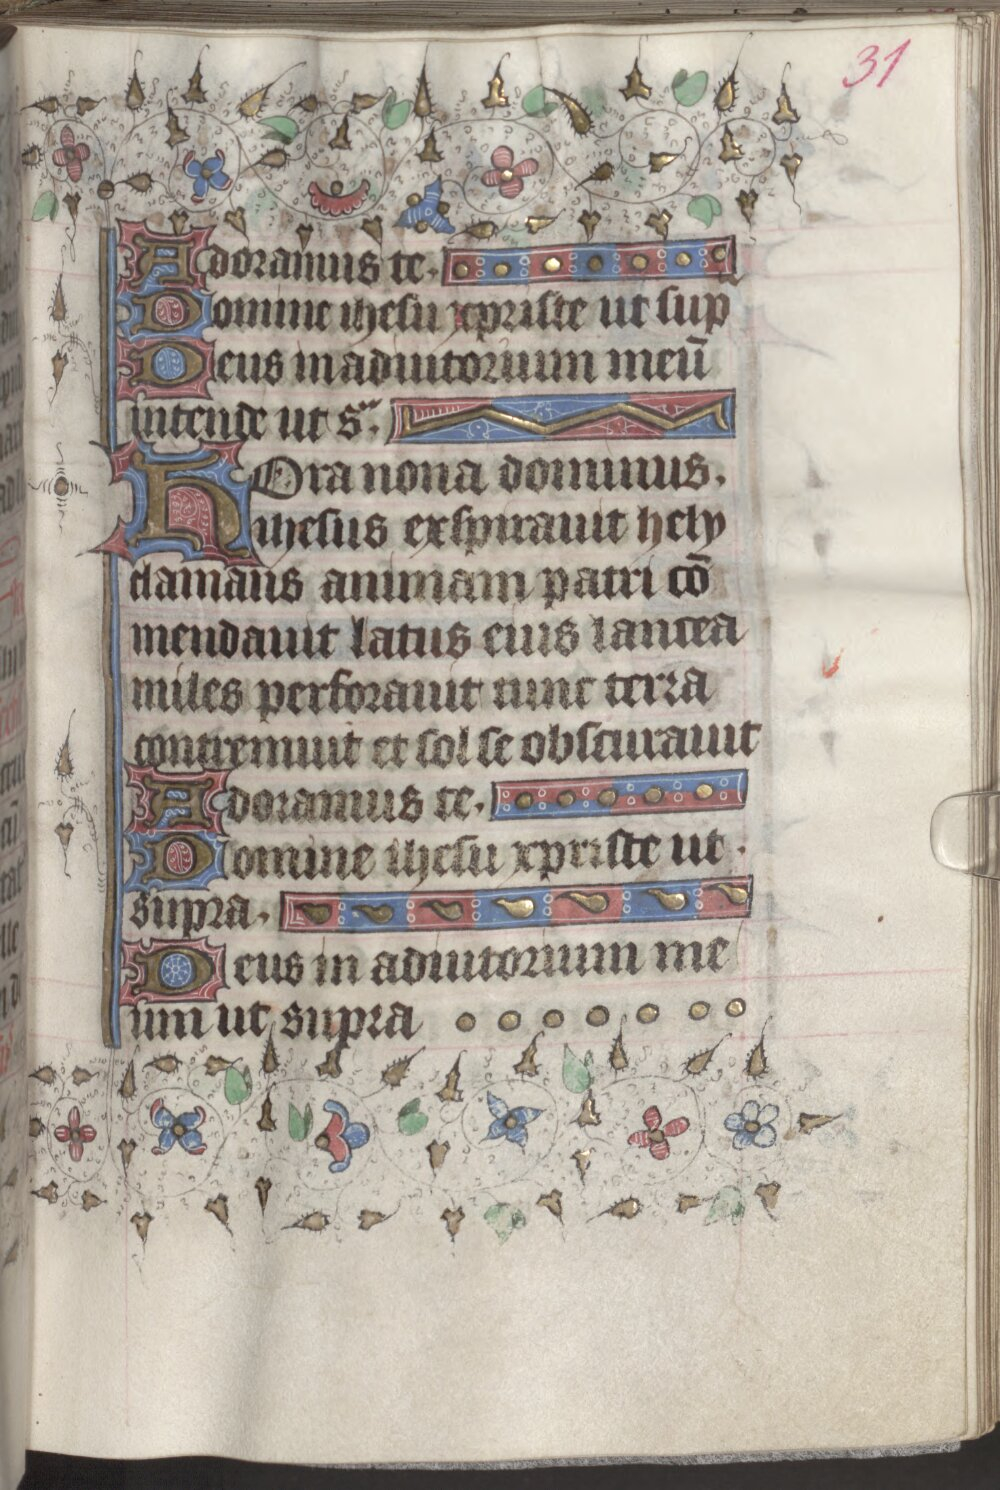 31
Adoramus te.
Domine ihesu xpriste ut sup
Deus in adiutorium meū
intende ut sᵃ.
HOra nona dominus.
ihesus exspirauit hely
clamans animam patri cō
mendauit latus eius lancea
miles perforauit tunc terra
contremuit et sol se obscurauit
Adoramus te.
Domine ihesu xpriste ut.
supra.
Deus in adiutorium me
um ut supra